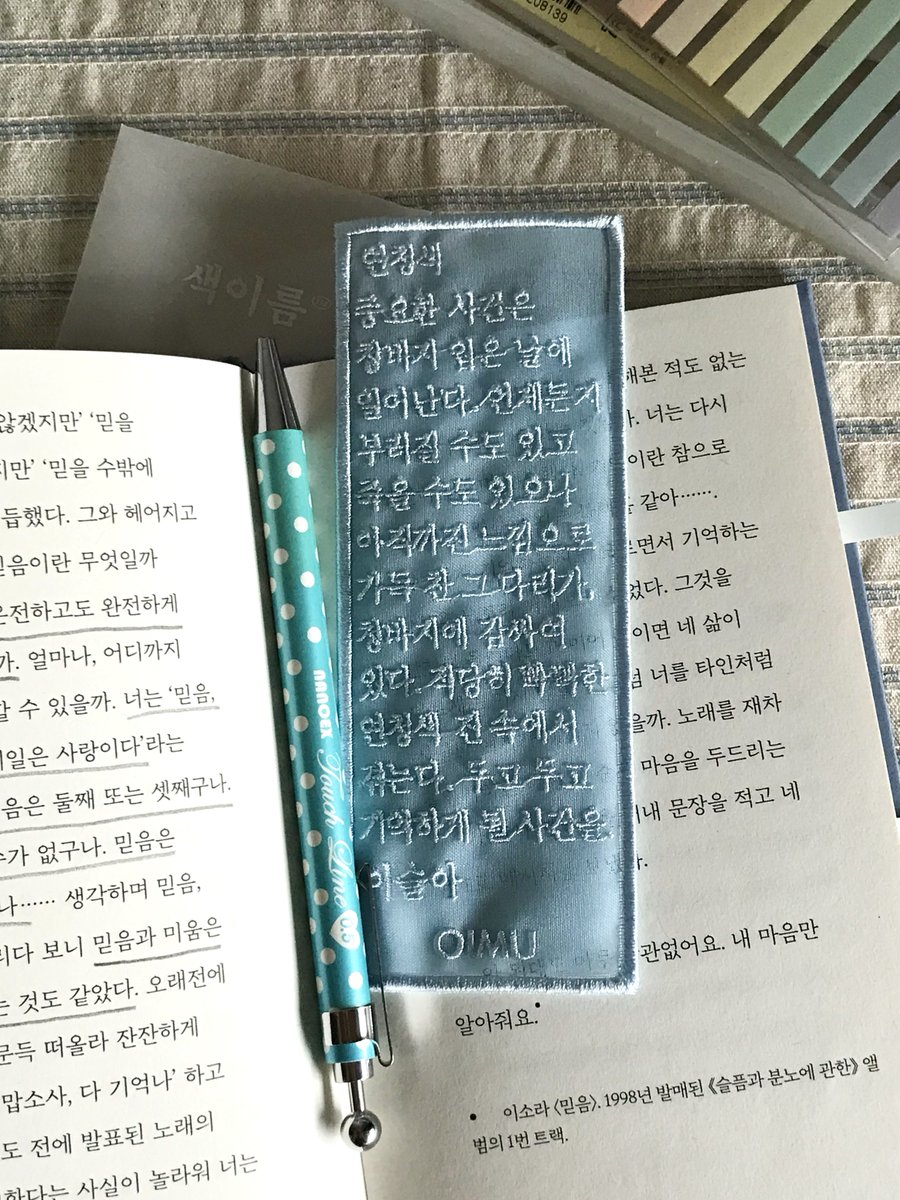 L08139
색이름
않겠지만’ ‘믿을
지만’ ‘믿을 수밖에
듭했다. 그와 헤어지고
믿음이란 무엇일까
온전하고도 완전하게
까. 얼마나, 어디까지
할 수 있을까. 너는 ‘믿음,
제일은 사랑이다’라는
음은 둘째 또는 셋째구나.
수가 없구나. 믿음은
나…… 생각하며 믿음,
리다 보니 믿음과 미움은
는 것도 같았다. 오래전에
문득 떠올라 잔잔하게
맙소사, 다 기억나’ 하고
도 전에 발표된 노래의
한다는 사실이 놀라워 너는
NANOEX Touch Line 0.5
연청색
중요한 사건은
청바지 입은 날에
일어난다. 언제든지
부러질 수도 있고
죽을 수도 있으나
아직까진 느낌으로
가득 찬 그 다리가,
청바지에 감싸여
있다. 적당히 빡빡한
연청색 진 속에서
겪는다. 두고 두고
기억하게 될 사건을.
이슬아
OIMU
해본 적도 없는
. 너는 다시
이란 참으로
같아…….
르면서 기억하는
었다. 그것을
이면 네 삶이
너를 타인처럼
을까. 노래를 재차
마음을 두드리는
내 문장을 적고 네
관없어요. 내 마음만
알아줘요.•
• 이소라 〈믿음〉. 1998년 발매된 《슬픔과 분노에 관한》 앨
범의 1번 트랙.